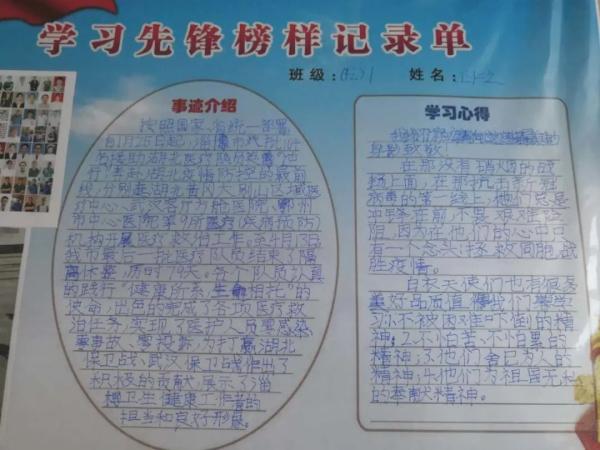 学习先锋榜样记录单
班级：(七)1 姓名：
事迹介绍
按照国家、省统一部署
自1月26日起，淄博市
名援助湖北医疗队员逆
行”奔赴湖北疫情防控的最前
线，分别在湖北黄冈大别山区域医
疗中心、武汉客厅方舱医院、鄂州
市中心医院等9所医疗(疾病预防)
机构开展医疗救治工作。至4月13日
我市最后一批医疗队员结束了隔
离休整，历时79天。各个队员认真
的践行“健康所系，生命相托”的
使命，出色的完成了各项医疗救
治任务，实现了医护人员零感染、
零事故、零投诉，为打赢湖北
保卫战、武汉保卫战作出了
积极的贡献，展示了淄
博卫生健康工作者的
担当和良好形象。
学习心得
在那没有硝烟的战
场上面，在那抗击新冠
病毒的第一线上，他们总是
冲锋在前，不畏艰难险
阻，因为在他们的心中只
有一个念头，拯救同胞，战
胜疫情。
白衣天使们也有很多
美好品质值得我们去学
习：1、不被困难击倒的精
神；2、不怕苦、不怕累的
精神；3、他们舍己为人的
精神；4、他们为祖国无私
的奉献精神。